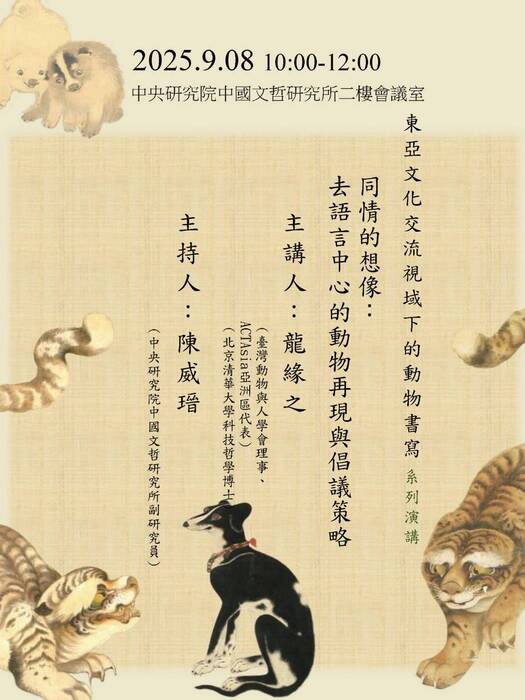 2025.9.08 10:00-12:00
中央研究院中國文哲研究所二樓會議室
東亞文化交流視域下的動物書寫 系列演講
同情的想像：
去語言中心的動物再現與倡議策略
主講人：龍緣之
（臺灣動物與人學會理事、
ACTAsia亞洲區代表）
（北京清華大學科技哲學博士
主持人：陳威瑨
（中央研究院中國文哲研究所副研究員）